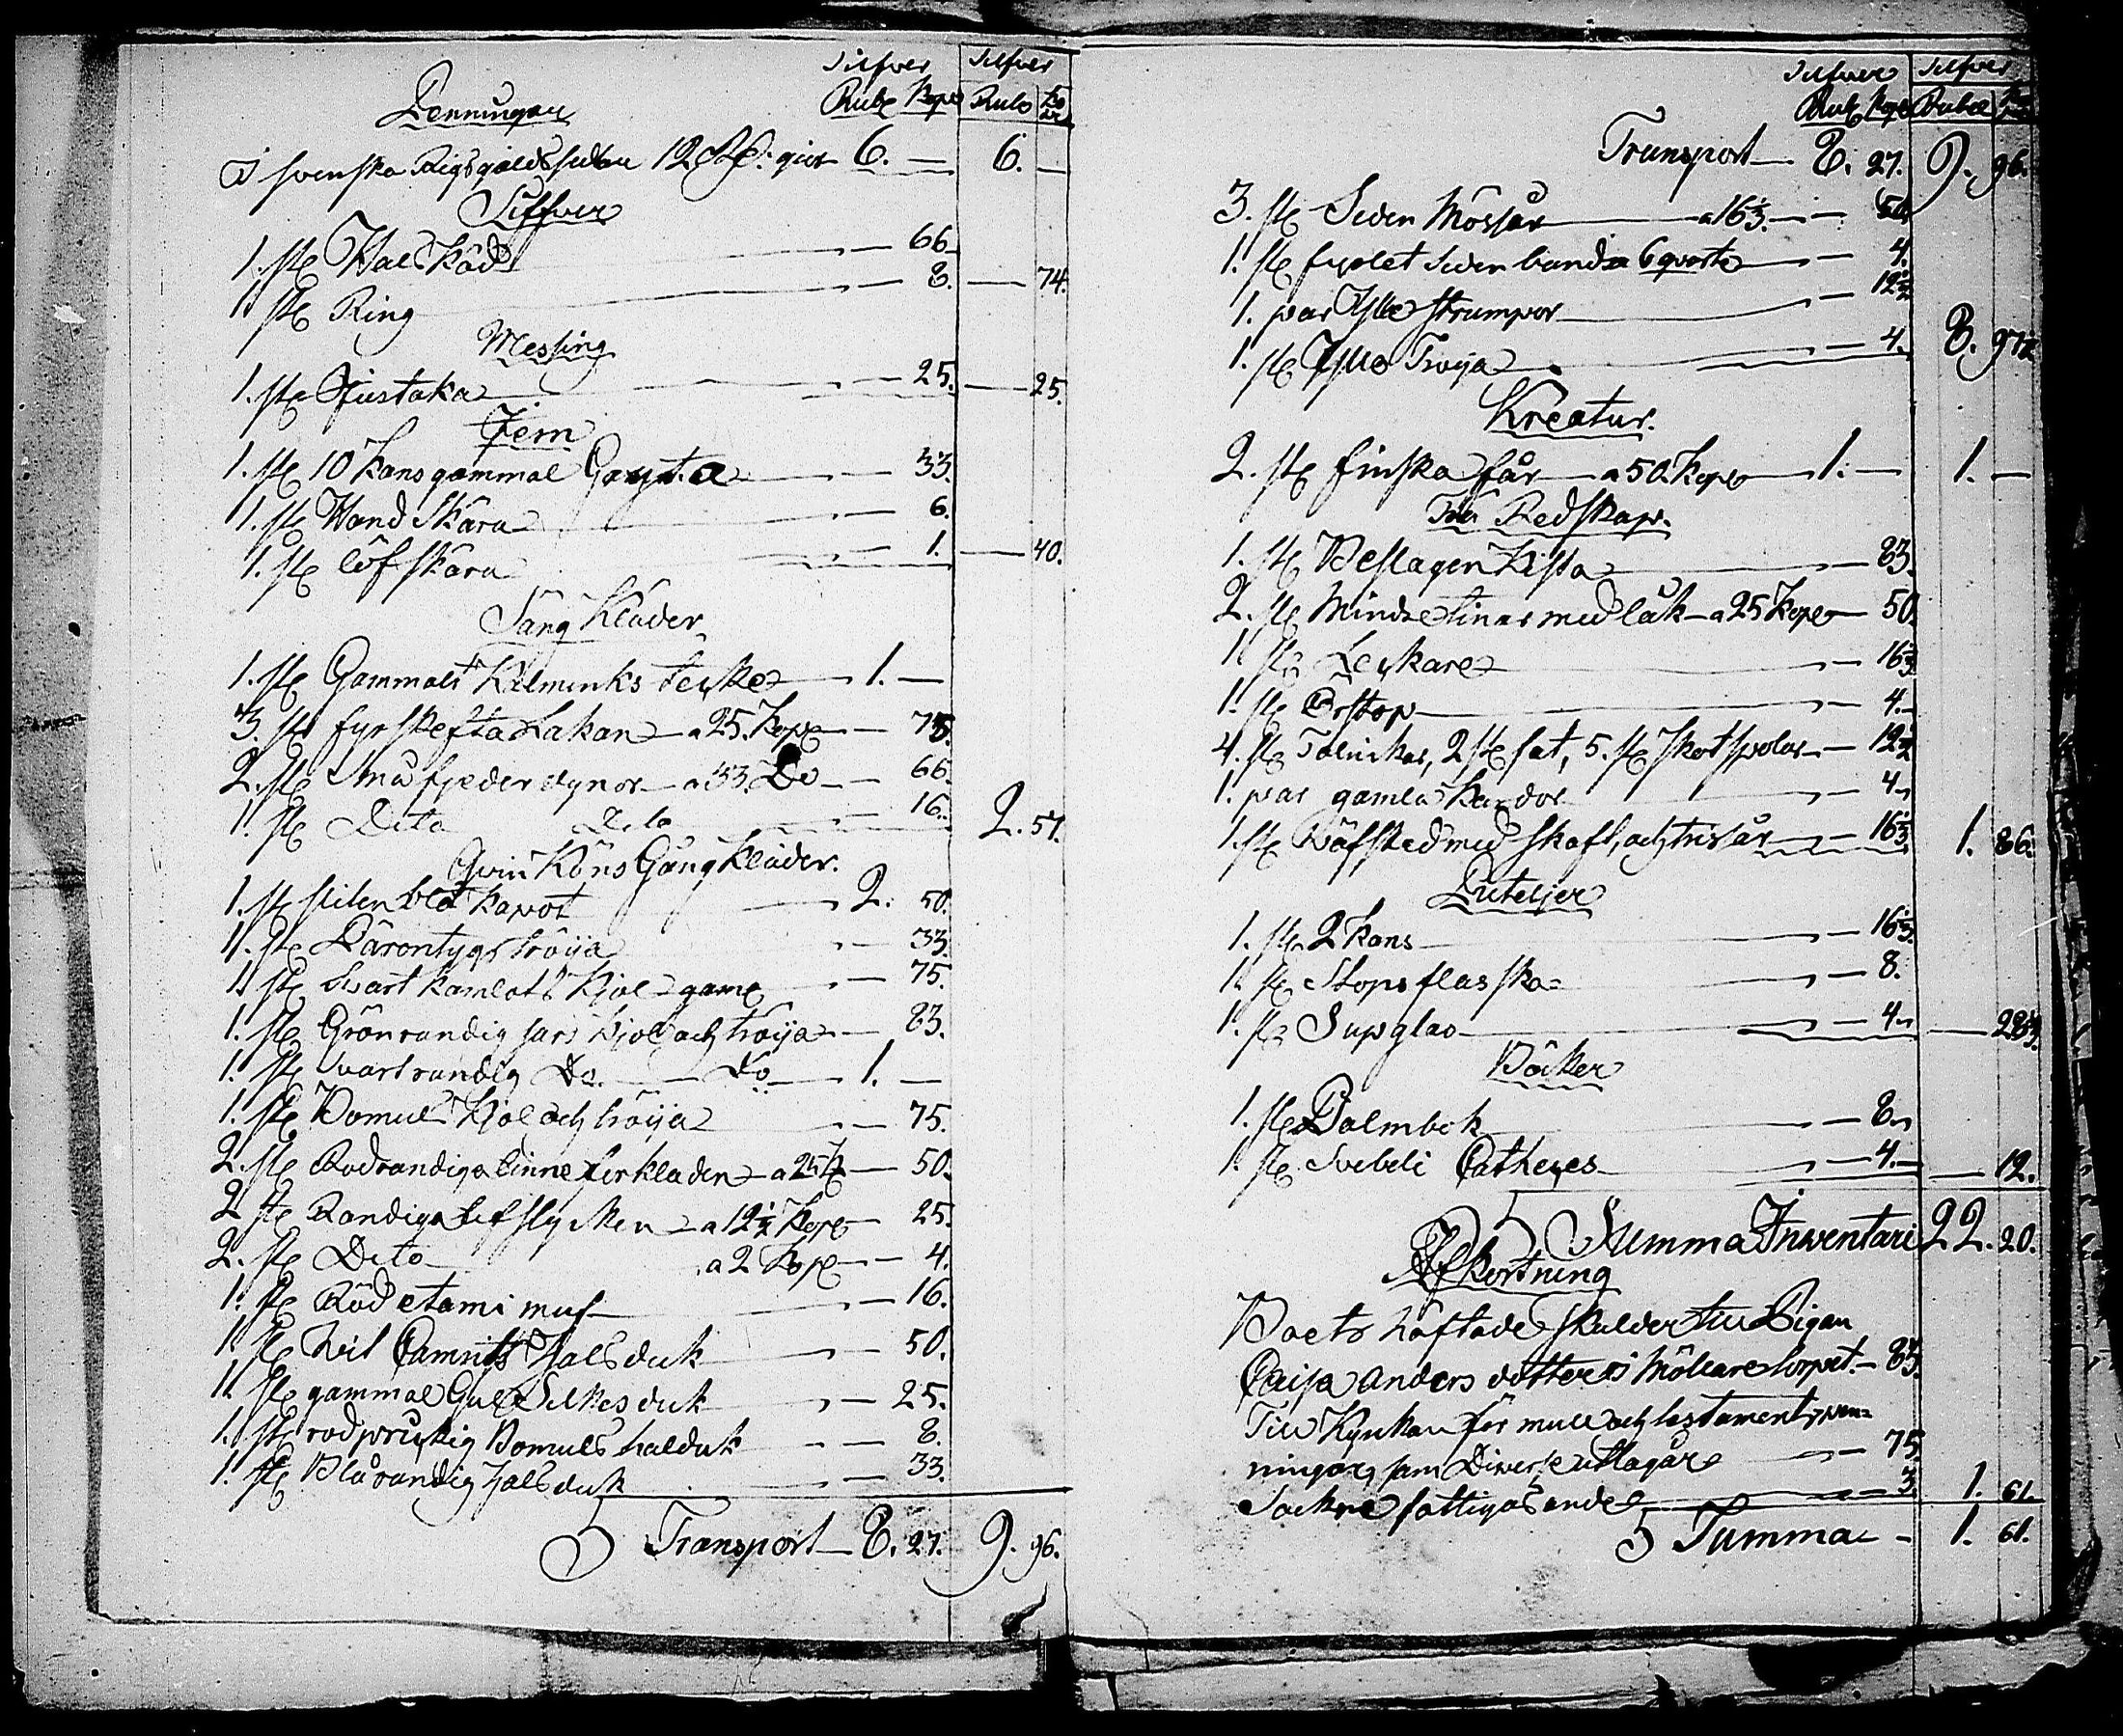 Silfver Silfver
Rube Kope Rubs Kop
Penningar
I Svenska Rigsgälds sedlar 12 Rd: giör 6. — 6. —
Silfver
1. st Halskäd — 66
1 st Ring — 8. — 74.
Messing
1. st Liustaka — 25. — 25.
Jern
1. st 10 kans gammal Gryta — 33.
1. st Hand Skära — 6.
1. st löf skära — 1. — 40.
Säng Kläder
1. st Gammalt Kalminks Teske — 1. —
3. st fyrskefta Lakan — a 25. Kope — 75.
2. st Små fjeder dynor — a 33. Do — 66.
1. st Dito Dito — 16. 2. 57.
Qvin Köns Gång Kläder.
1. st blå kapot — 2. 50.
1. st Lärontygs tröija — 33.
1. st Svart kamlots Kjol game — 75.
1. st Grönrandig sars Kjol och tröija — 83.
1. st svartrandig Do. — Do. — 1. —
1. st Bomuls Kjol och tröija — 75.
2. st Rödrandiga linne förkläden — a 25 K — 50.
2 st Randiga lifstycken — a 12½ Kope — 25.
2. st Dito a 2 Kope — 4.
1. st Röd etami mus — 16.
1. st hvit Camrits Halsduk — 50.
1. st gammal Gul Silkesduk — 25.
1. st rödprickig Bomuls halduk — 8.
1. st Blårandig halsduk — 33.
Transport — 8. 27. 9. 96.
Silfver Silfver
Rub Kope Rubel Kop
Transport — 8. 27. 9. 96.
3. st Siden Mössor — a 16⅔. — 50.
1. st fiolet Siden band a 6 qvarter — 4.
1. par Ylle strumpor — 12½
1. st Ylle Tröija — 4. 8. 97½
Kreatur.
2. st finska får — a 50. Kope — 1. — 1. —
Trä Redskap.
1. st Beslagen Kista — 83.
2. st Mindre tinar med låk — a 25 Kope — 50.
1. st Leskare — 16⅔
1. st Ölstop — 4.
4. st Talrikar, 2 st fat, 5. st Skotspolar — 12½
1. par gamla Kardor — 4.
1. st Wäfsked med skaft, och trissor — 16⅔. 1. 86.
Buteljer
1. st 2 kans — 16⅔.
1. st Stopsflasska — 8.
1. st Supglas — 4. — 28⅔.
Böcker
1. st Psalmbok — 8.
1. st Svebeli Catheges — 4. — 12.
Summa Inventari 22. 20.
Afkortning
Boets häftade skulder till Pigan
Caisa Anders dotter i Möllare torpet. — 83.
Till Kyrkan för mull och testaments pen=
ningar, sam Diverse utlagor — 75.
Sockne fattigas andel — 3. 1. 61.
Summa — 1. 61.